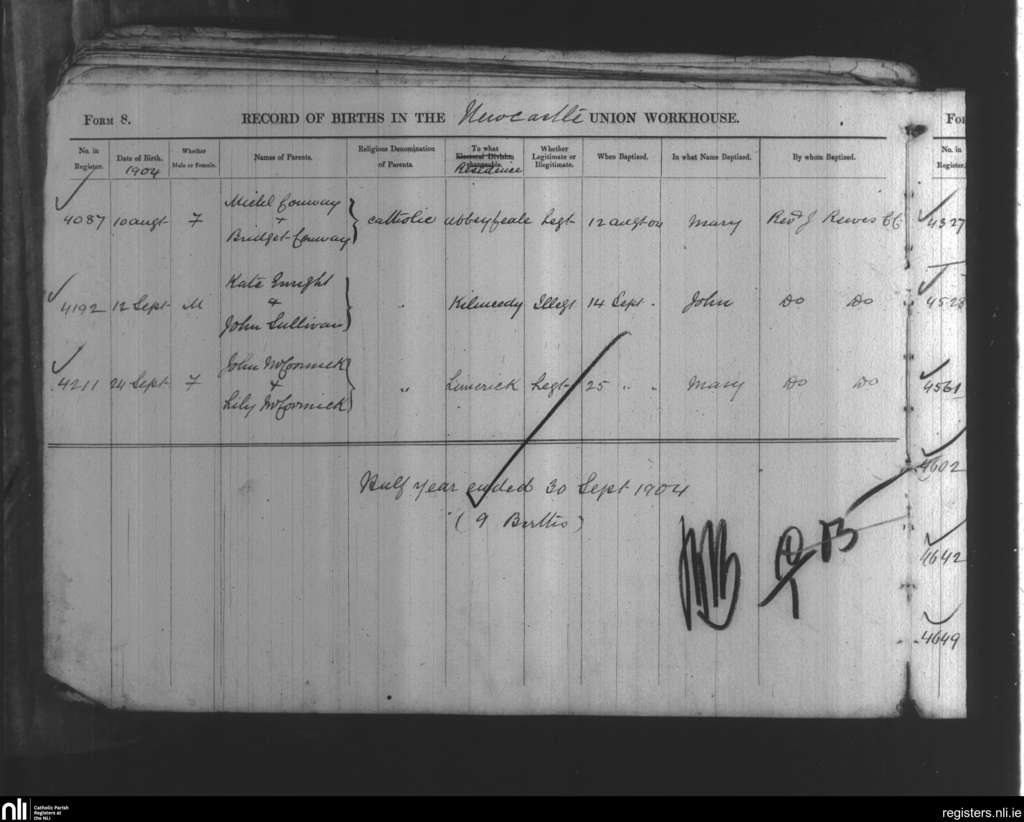 Form 8.
RECORD OF BIRTHS IN THE Newcastle UNION WORKHOUSE.
No. in Register. Date of Birth. 1904 Whether Male or Female. Names of Parents. Religious Denomination of Parents. To what Electoral Division chargeable. Residence Whether Legitimate or Illegitimate. When Baptized. In what Name Baptized. By whom Baptized.
4087 10 augt F Michl Conway + Bridget Conway } catholic abbeyfeale Legt 12 augt 04 Mary Revd J Reeves CC
4192 12 Sept M Kate Enright + John Sullivan } " Kilmeedy Illegt 14 Sept . John Do Do
4211 24 Sept F John McCormick + Lily McCormick } " Limerick Legt 25 " " Mary Do Do
Half year ended 30 Sept 1904
(9 Births)
No. in Register.
4327
4528
4561
4602
4642
4649
nli
Catholic Parish
Registers at
the NLI
registers.nli.ie